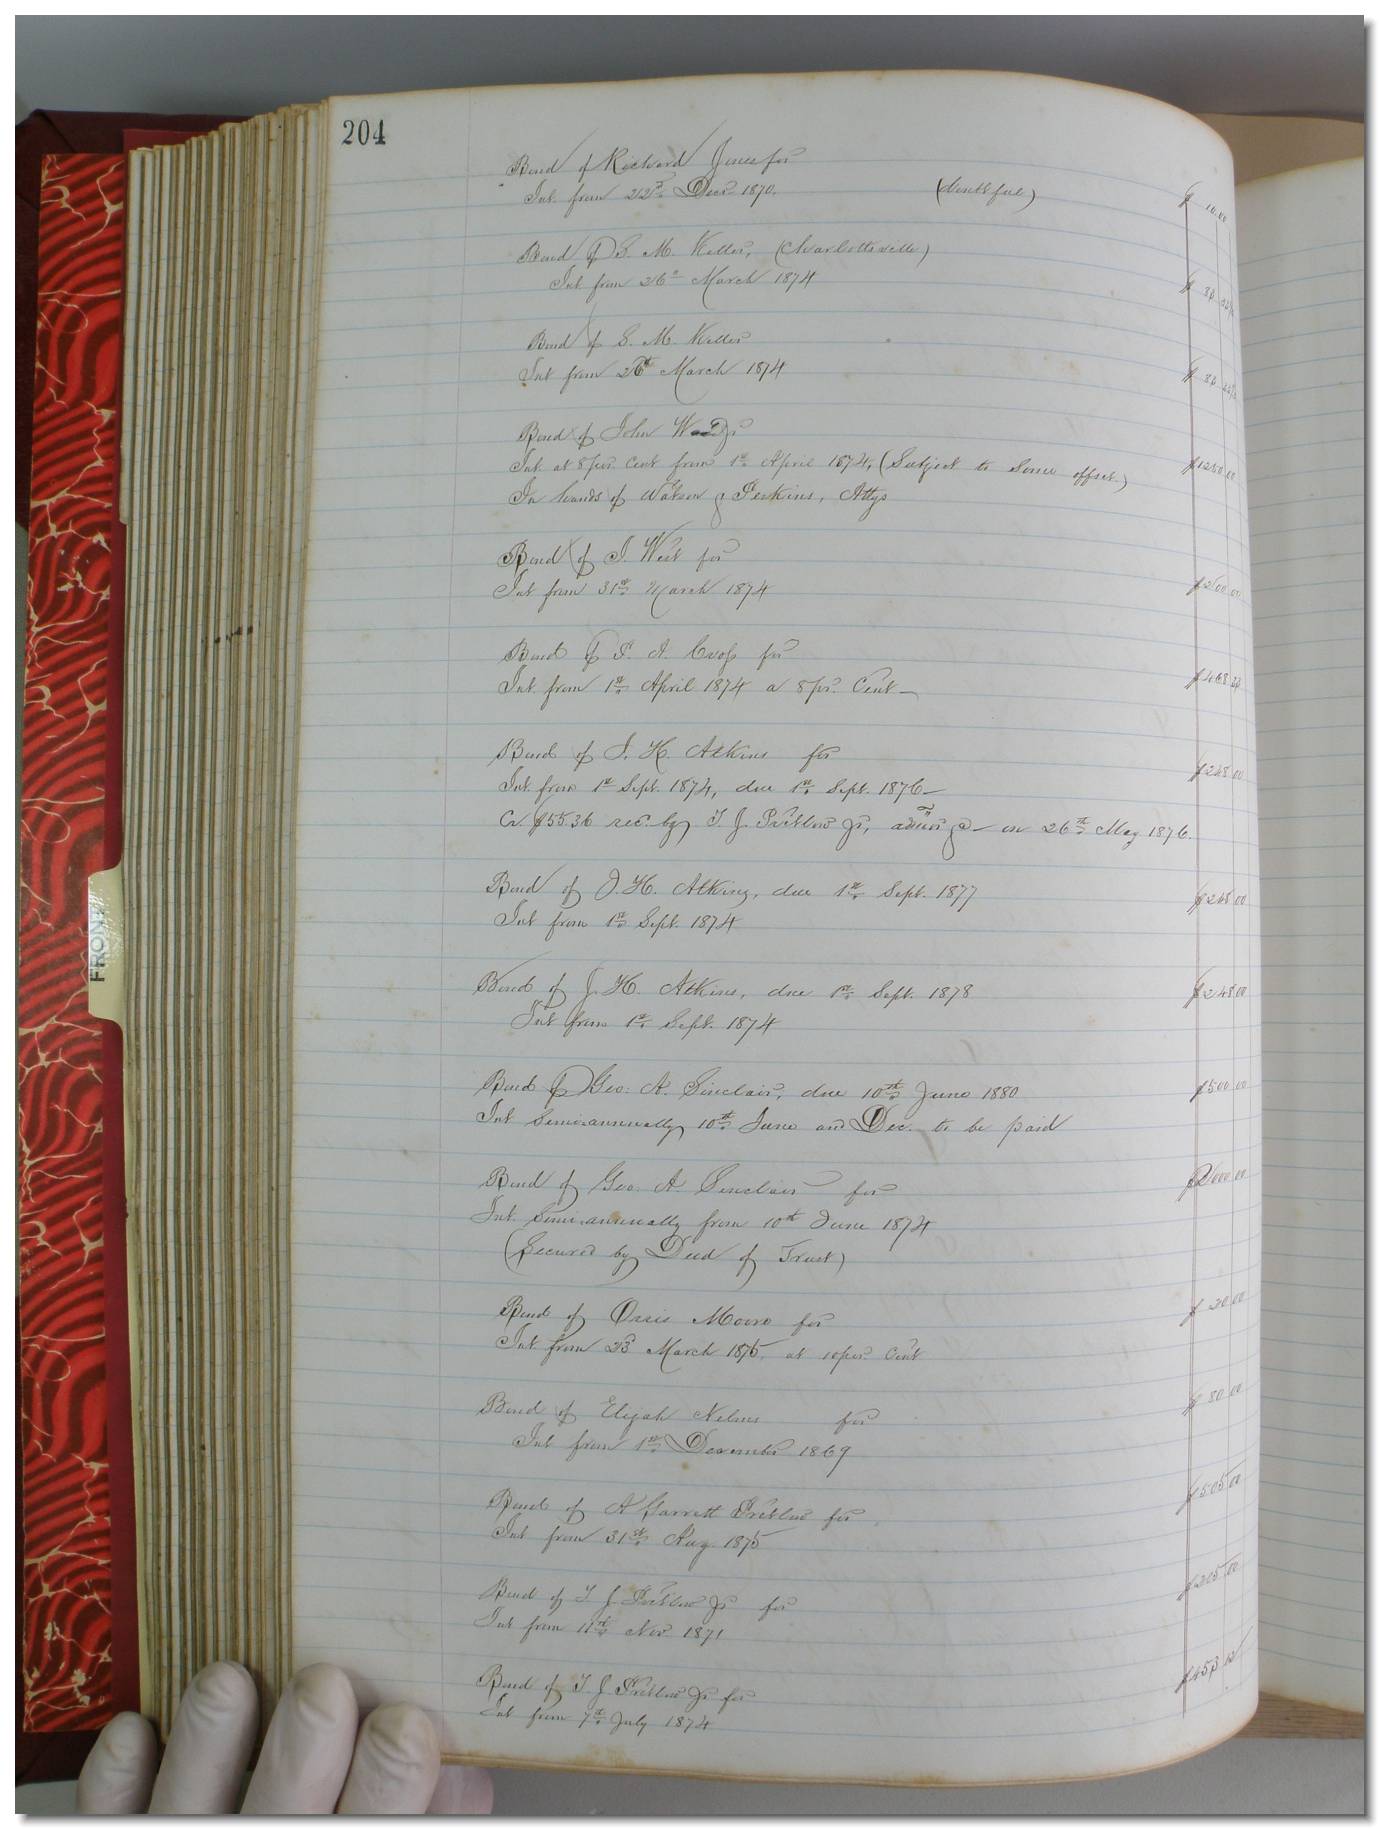 204
Bond of Richard Jones for
Int. from 22nd Decr. 1870. (doubtful) $ 10.00
Bond of S. M. Keller, (Charlottesville)
Int from 26th March 1874 $ 
Bond of S. M. Keller
Int from 26th March 1874 $ 
Bond of John Wood Jr
Int. at 8 per Cent from 1st April 1874, (Subject to some offset) $1250.00
In hands of Watson & Perkins, Attys
Bond of J. West for
Int from 31st March 1874 $200.00
Bond of A. Cross for
Int. from 1st April 1874 a 8 pr. Cent $468.
Bond of J. H. Atkins for $248.00
Int. from 1st Sept. 1874, due 1st Sept. 1876
Cr $55.36 rec. by T. J. Pretlow Jr, on 26th May 1876.
Bond of J. H. Atkins, due 1st Sept. 1877 $248.00
Int from 1st Sept. 1874
Bond of J. H. Atkins, due 1st Sept. 1878 $248.00
Int from 1st Sept. 1874
Bond of Geo. A. Sinclair, due 10th June 1880 $500.00
Int Semi-annually 10th June and Dec. to be paid
Bond of Geo. A. Sinclair for $2000.00
Int. Semi-annually from 10th June 1874
(Secured by Deed of Trust)
Bond of Ossie Moore for $ 20.00
Int from 23 March 1875, at 10 per Cent
Bond of Elijah Nelms for $ 80.00
Int from 1st December 1869
Bond of A Garrett Pretlow for $505.00
Int from 31st Aug. 1875
Bond of T J Pretlow Jr for $205.00
Int from 11th Nov. 1871
Bond of T. J. Pretlow Jr for $453.12
Int from 7th July 1874
FRONT